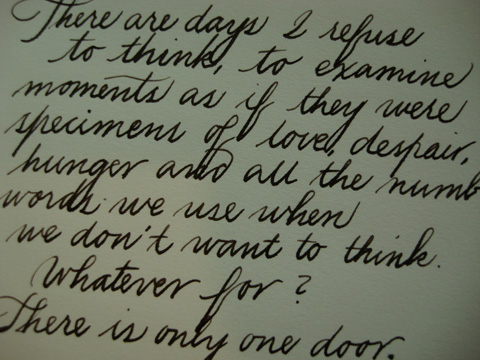 There are days I refuse
to think, to examine
moments as if they were
specimens of love, despair,
hunger and all the numb
words we use when
we don't want to think.
Whatever for?
There is only one door.